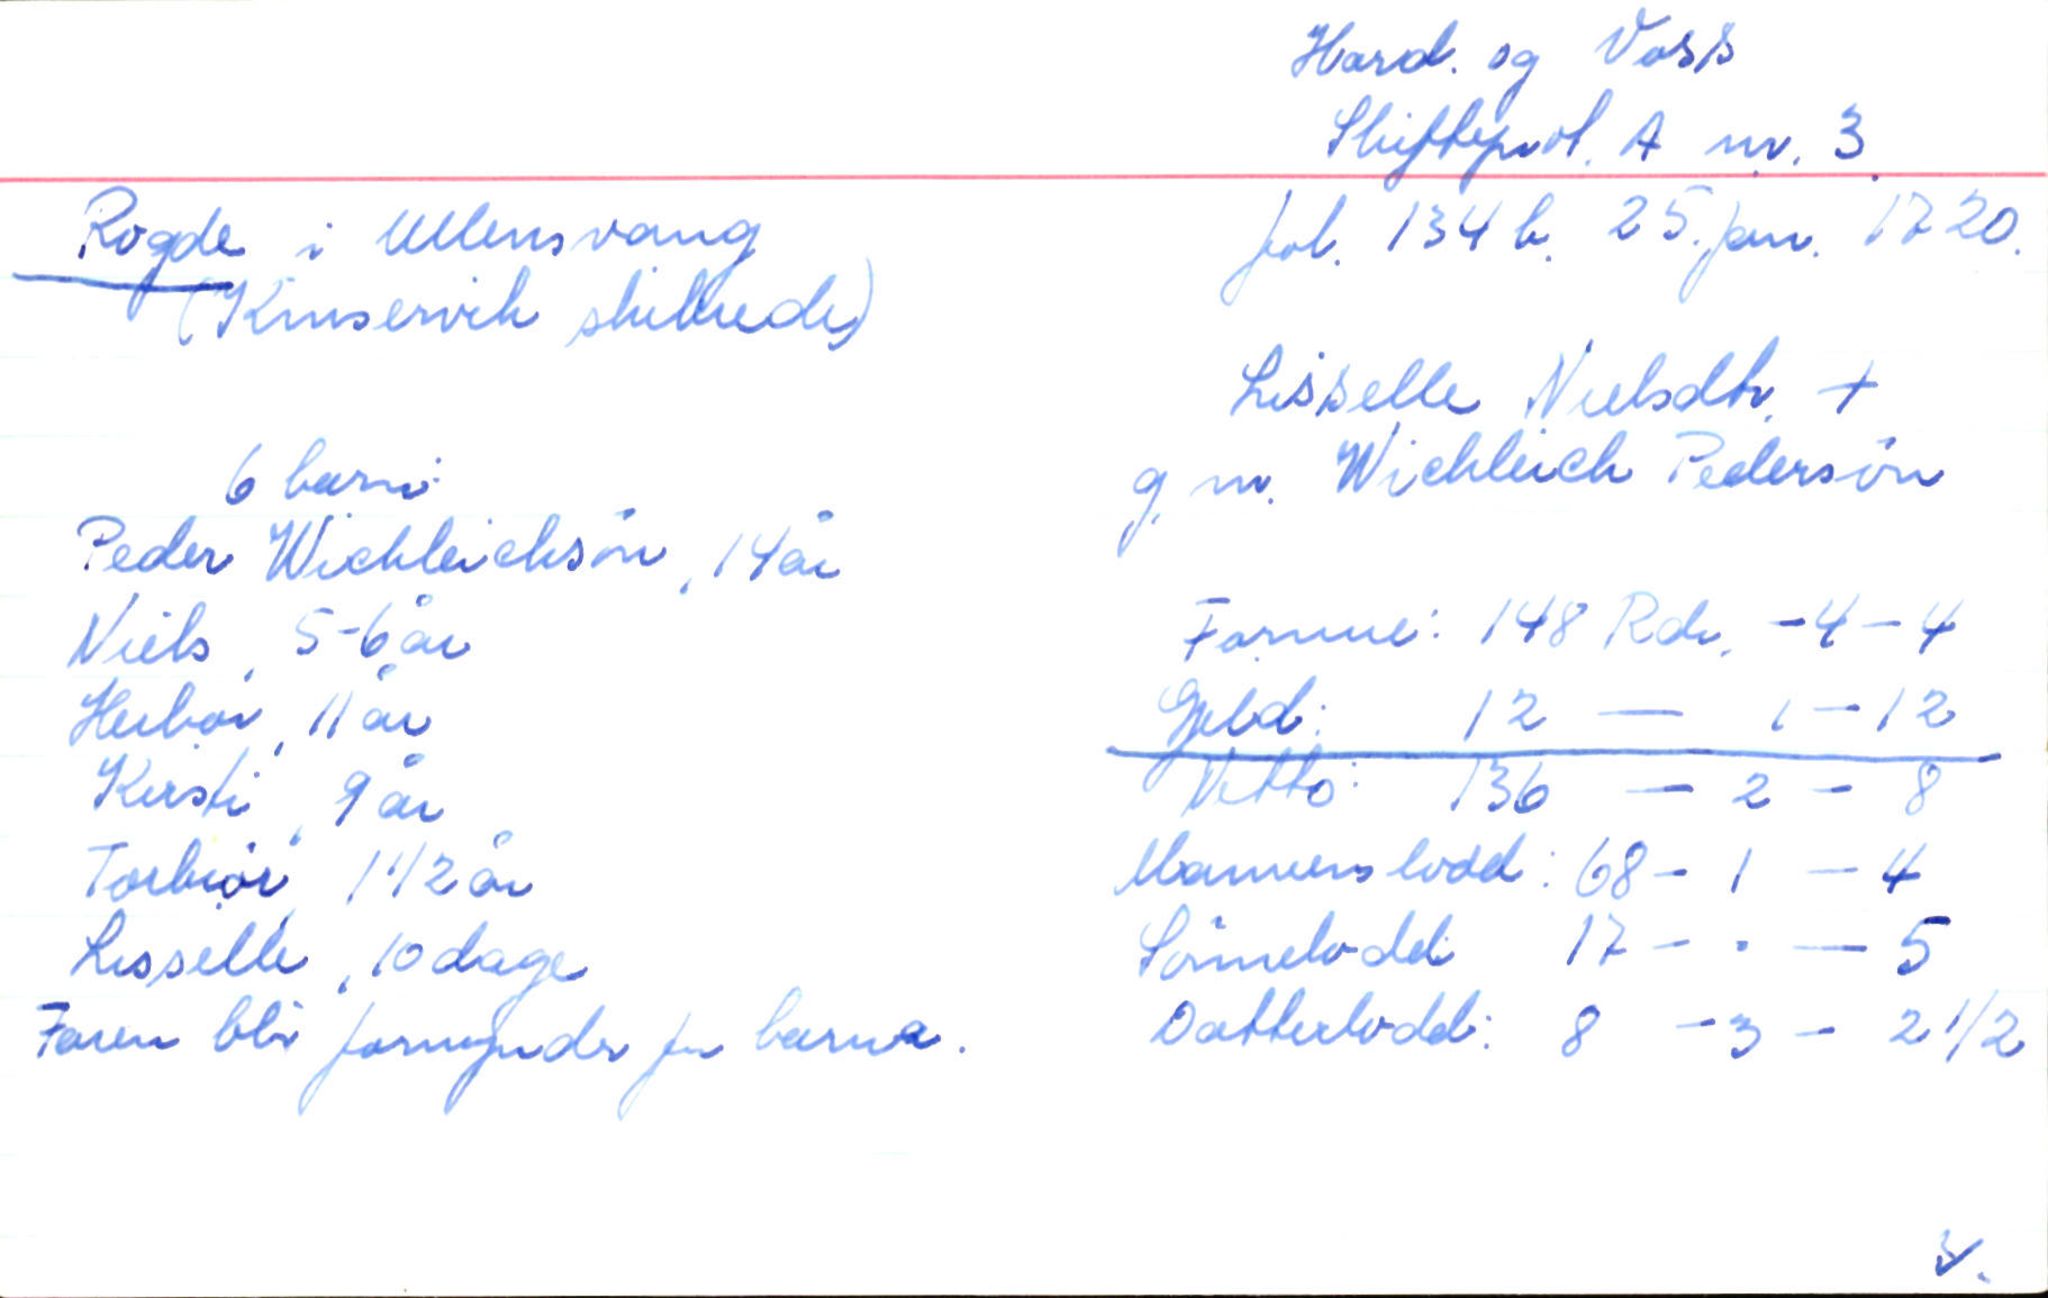 Hard. og Voss
Skifteprot. A nr. 3
Rogde i Ullensvang
fol. 134 b. 25. jan. 1720.
(Kinservik skibrede)
Lisselle Nielsdtr. +
g. m. Wichleich Pedersön
6 barn:
Peder Wichleichsön, 14 år
Niels, 5-6 år
Herbor, 11 år
Kirsti, 9 år
Torbiør, 1 1/2 år
Lisselle, 10 dage
Faren blir formynder for barna.
Formue: 148 Rdr. - 4 - 4
Gjeld: 12 — 1 - 12
Netto: 136 — 2 - 8
Mannens lodd: 68 - 1 — 4
Sönnelodd 17 - . — 5
Datterlodd: 8 - 3 - 2 1/2